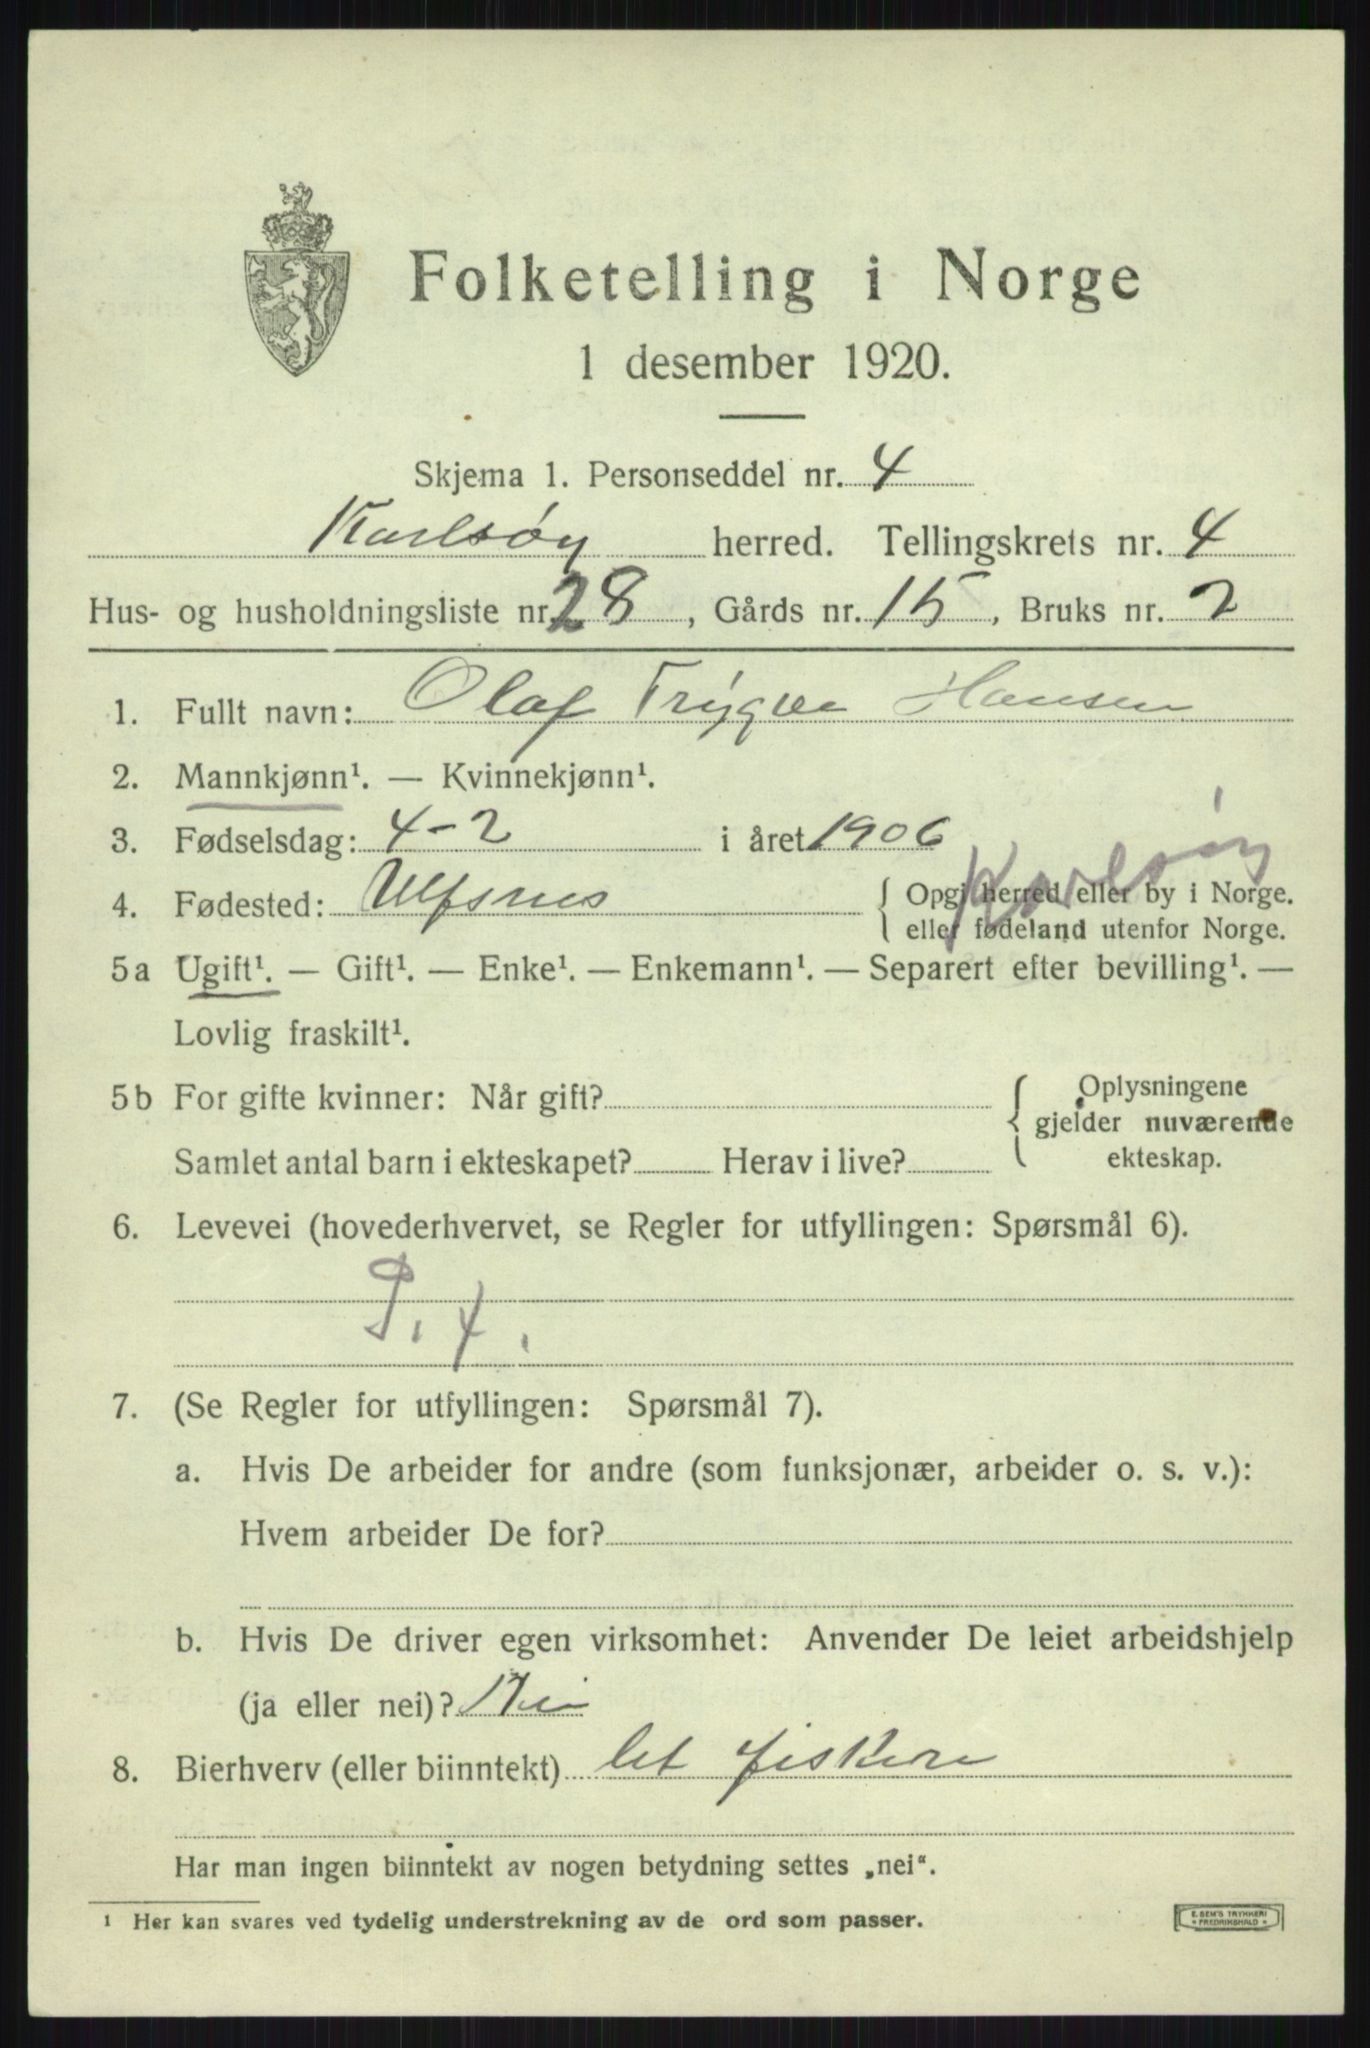 Folketelling i Norge
1 desember 1920.
Skjema 1. Personseddel nr. 4
Karlsøy herred. Tellingskrets nr. 4
Hus- og husholdningsliste nr. 28, Gårds nr. 15, Bruks nr. 2
1. Fullt navn: Olaf Trygve Hansen
2. Mannkjønn¹. — Kvinnekjønn¹.
3. Fødselsdag: 4-2 i året 1906
Karlsøy
4. Fødested: Ulfsnes { Opgi herred eller by i Norge.
eller fødeland utenfor Norge.
5a Ugift¹. — Gift¹. — Enke¹. — Enkemann¹. — Separert efter bevilling¹. —
Lovlig fraskilt¹.
5b For gifte kvinner: Når gift? { Oplysningene
gjelder nuværende
Samlet antal barn i ekteskapet? Herav i live? ekteskap.
6. Levevei (hovederhvervet, se Regler for utfyllingen: Spørsmål 6).
7. (Se Regler for utfyllingen: Spørsmål 7).
a. Hvis De arbeider for andre (som funksjonær, arbeider o. s. v.):
Hvem arbeider De for?
b. Hvis De driver egen virksomhet: Anvender De leiet arbeidshjelp
(ja eller nei)? Nei
8. Bierhverv (eller biinntekt) fiskeri
Har man ingen biinntekt av nogen betydning settes „nei“.
¹ Her kan svares ved tydelig understrekning av de ord som passer.
E. SEM'S TRYKKERI
FREDRIKSHALD